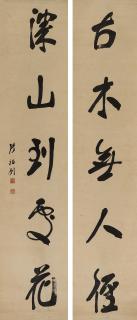 古木無人徑
深山到處花